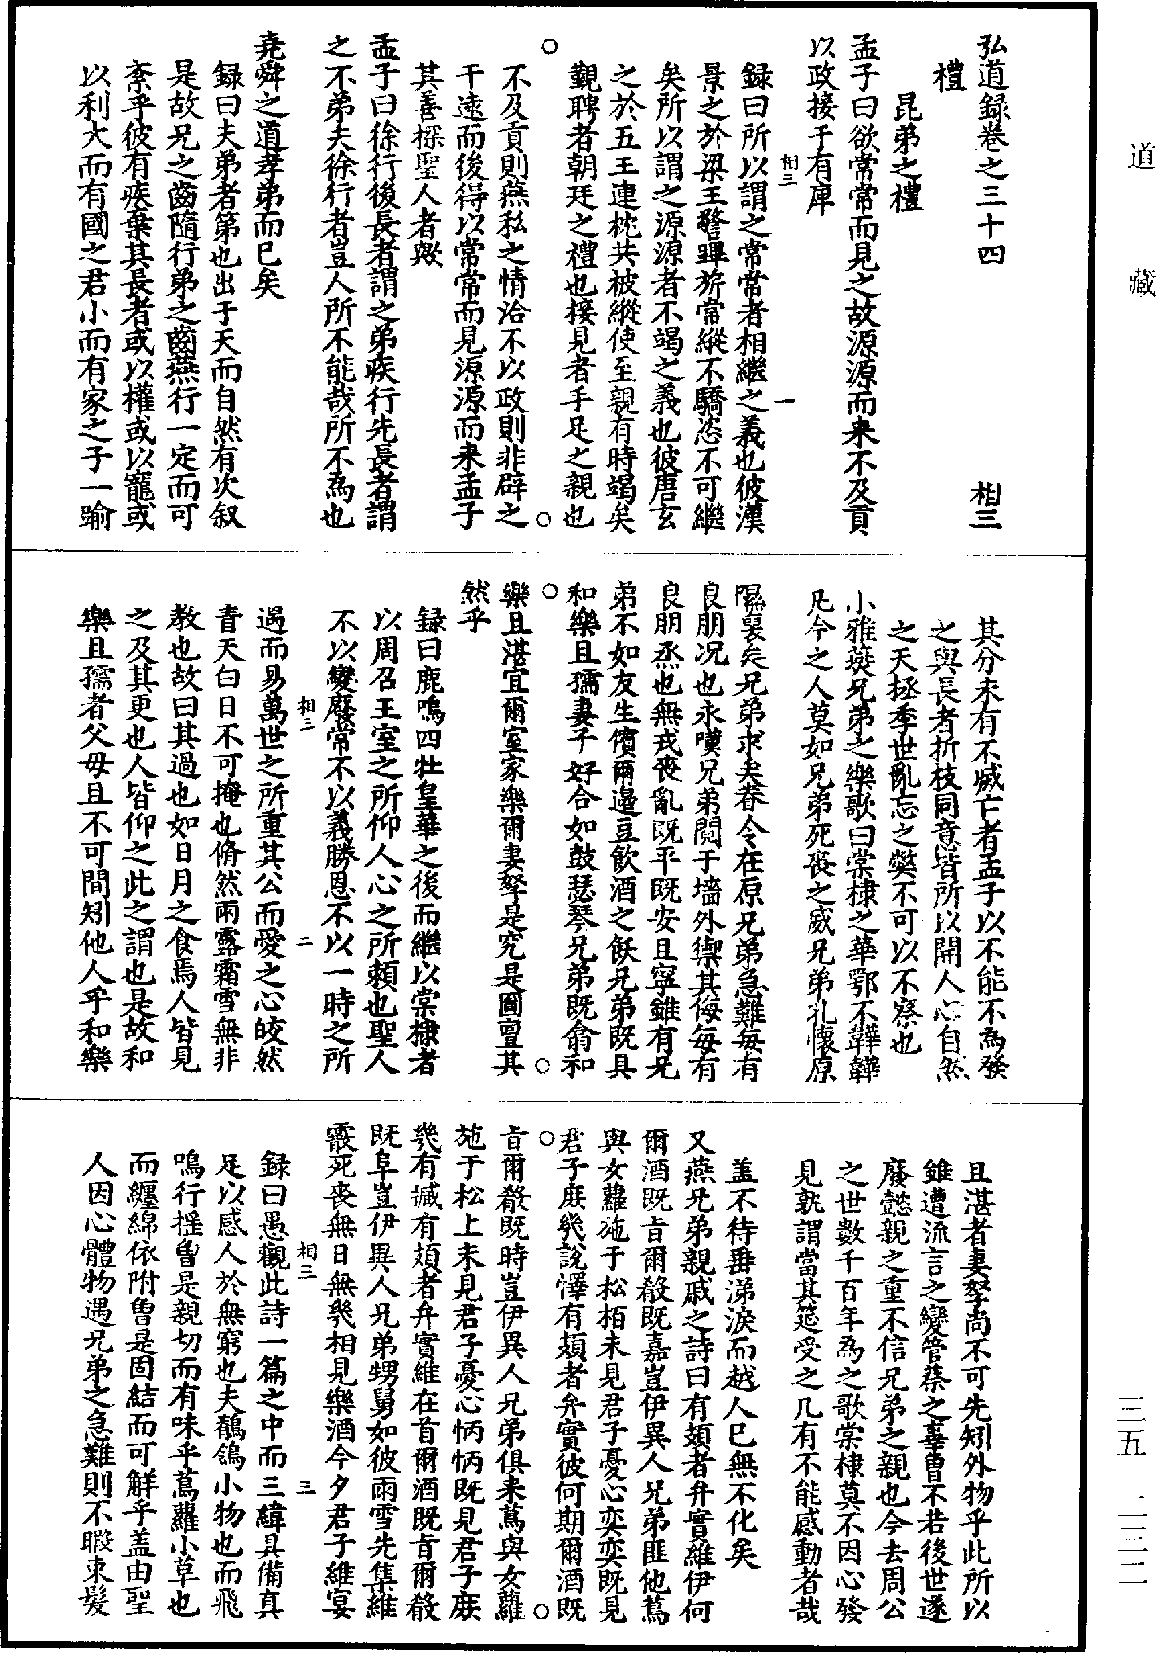 道藏
弘道録卷之三十四　相三
禮
昆弟之禮
孟子曰欲常常而見之故源源而来不及貢
以政接于有庳
録曰所以謂之常常者相繼之義也彼漢
景之於梁王警蹕旂常縱不驕恣不可繼
矣所以謂之源源者不竭之義也彼唐玄
之於五王連枕共被縱使至親有時竭矣
覲聘者朝廷之禮也接見者手足之親也
不及貢則燕私之情洽不以政則非辟之
干遠而後得以常常而見源源而来孟子
其善探聖人者歟
孟子曰徐行後長者謂之弟疾行先長者謂
之不弟夫徐行者豈人所不能哉所不為也
堯舜之道孝弟而已矣
録曰夫弟者第也出于天而自然有次叙
是故兄之齒隨行弟之齒燕行一定而可
紊乎彼有疾棄其長者或以權或以寵或
以利大而有國之君小而有家之子一踰
其分未有不喪亡者孟子以不能不為發
之與長者折枝同意皆所以開人心自然
之天拯季世亂忘之弊不可以不察也
小雅燕兄弟之樂歌曰棠棣之華鄂不韡韡
凡今之人莫如兄弟死喪之威兄弟孔懷原
隰裒矣兄弟求矣脊令在原兄弟急難每有
良朋况也永嘆兄弟鬩于墻外禦其侮每有
良朋烝也無戎喪亂既平既安且寧雖有兄
弟不如友生儐爾籩豆飲酒之飫兄弟既具
和樂且孺妻子好合如鼓瑟琴兄弟既翕和
樂且湛宜爾室家樂爾妻孥是究是圖亶其
然乎
録曰鹿鳴四牡皇華之後而繼以棠棣者
以周召王室之所仰人心之所賴也聖人
不以變廢常不以義勝恩不以一時之所
遇而易萬世之所重其公而愛之心皎然
青天白日不可掩也脩然雨露霜雪無非
教也故曰其過也如日月之食焉人皆見
之及其更也人皆仰之此之謂也是故和
樂且孺者父母且不可間矧他人乎和樂
且湛者妻孥尚不可先矧外物乎此所以
雖遭流言之變管蔡之辜曾不若後世遂
廢懿親之重不信兄弟之親也今去周公
之世數千百年為之歌棠棣莫不因心發
見孰謂當其筵受之几有不能感動者哉
盖不待垂涕淚而越人已無不化矣
又燕兄弟親戚之詩曰有頍者弁實維伊何
爾酒既旨爾殽既嘉豈伊異人兄弟匪他蔦
與女蘿施于松栢未見君子憂心奕奕既見
君子庶幾說懌有頍者弁實彼何期爾酒既
旨爾殽既時豈伊異人兄弟俱来蔦與女蘿
施于松上未見君子憂心怲怲既見君子庶
幾有臧有頍者弁實維在首爾酒既旨爾殽
既阜豈伊異人兄弟甥舅如彼雨雪先集維
霰死喪無日無幾相見樂酒今夕君子維宴
録曰愚觀此詩一篇之中而三緯具備真
足以感人於無窮也夫鶺鴒小物也而飛
鳴行摇曾是親切而有味乎蔦蘿小草也
而纏綿依附曾是固結而可解乎盖由聖
人因心體物遇兄弟之急難則不暇束髮
相三　一
相三　二
相三　三
三五　二三二